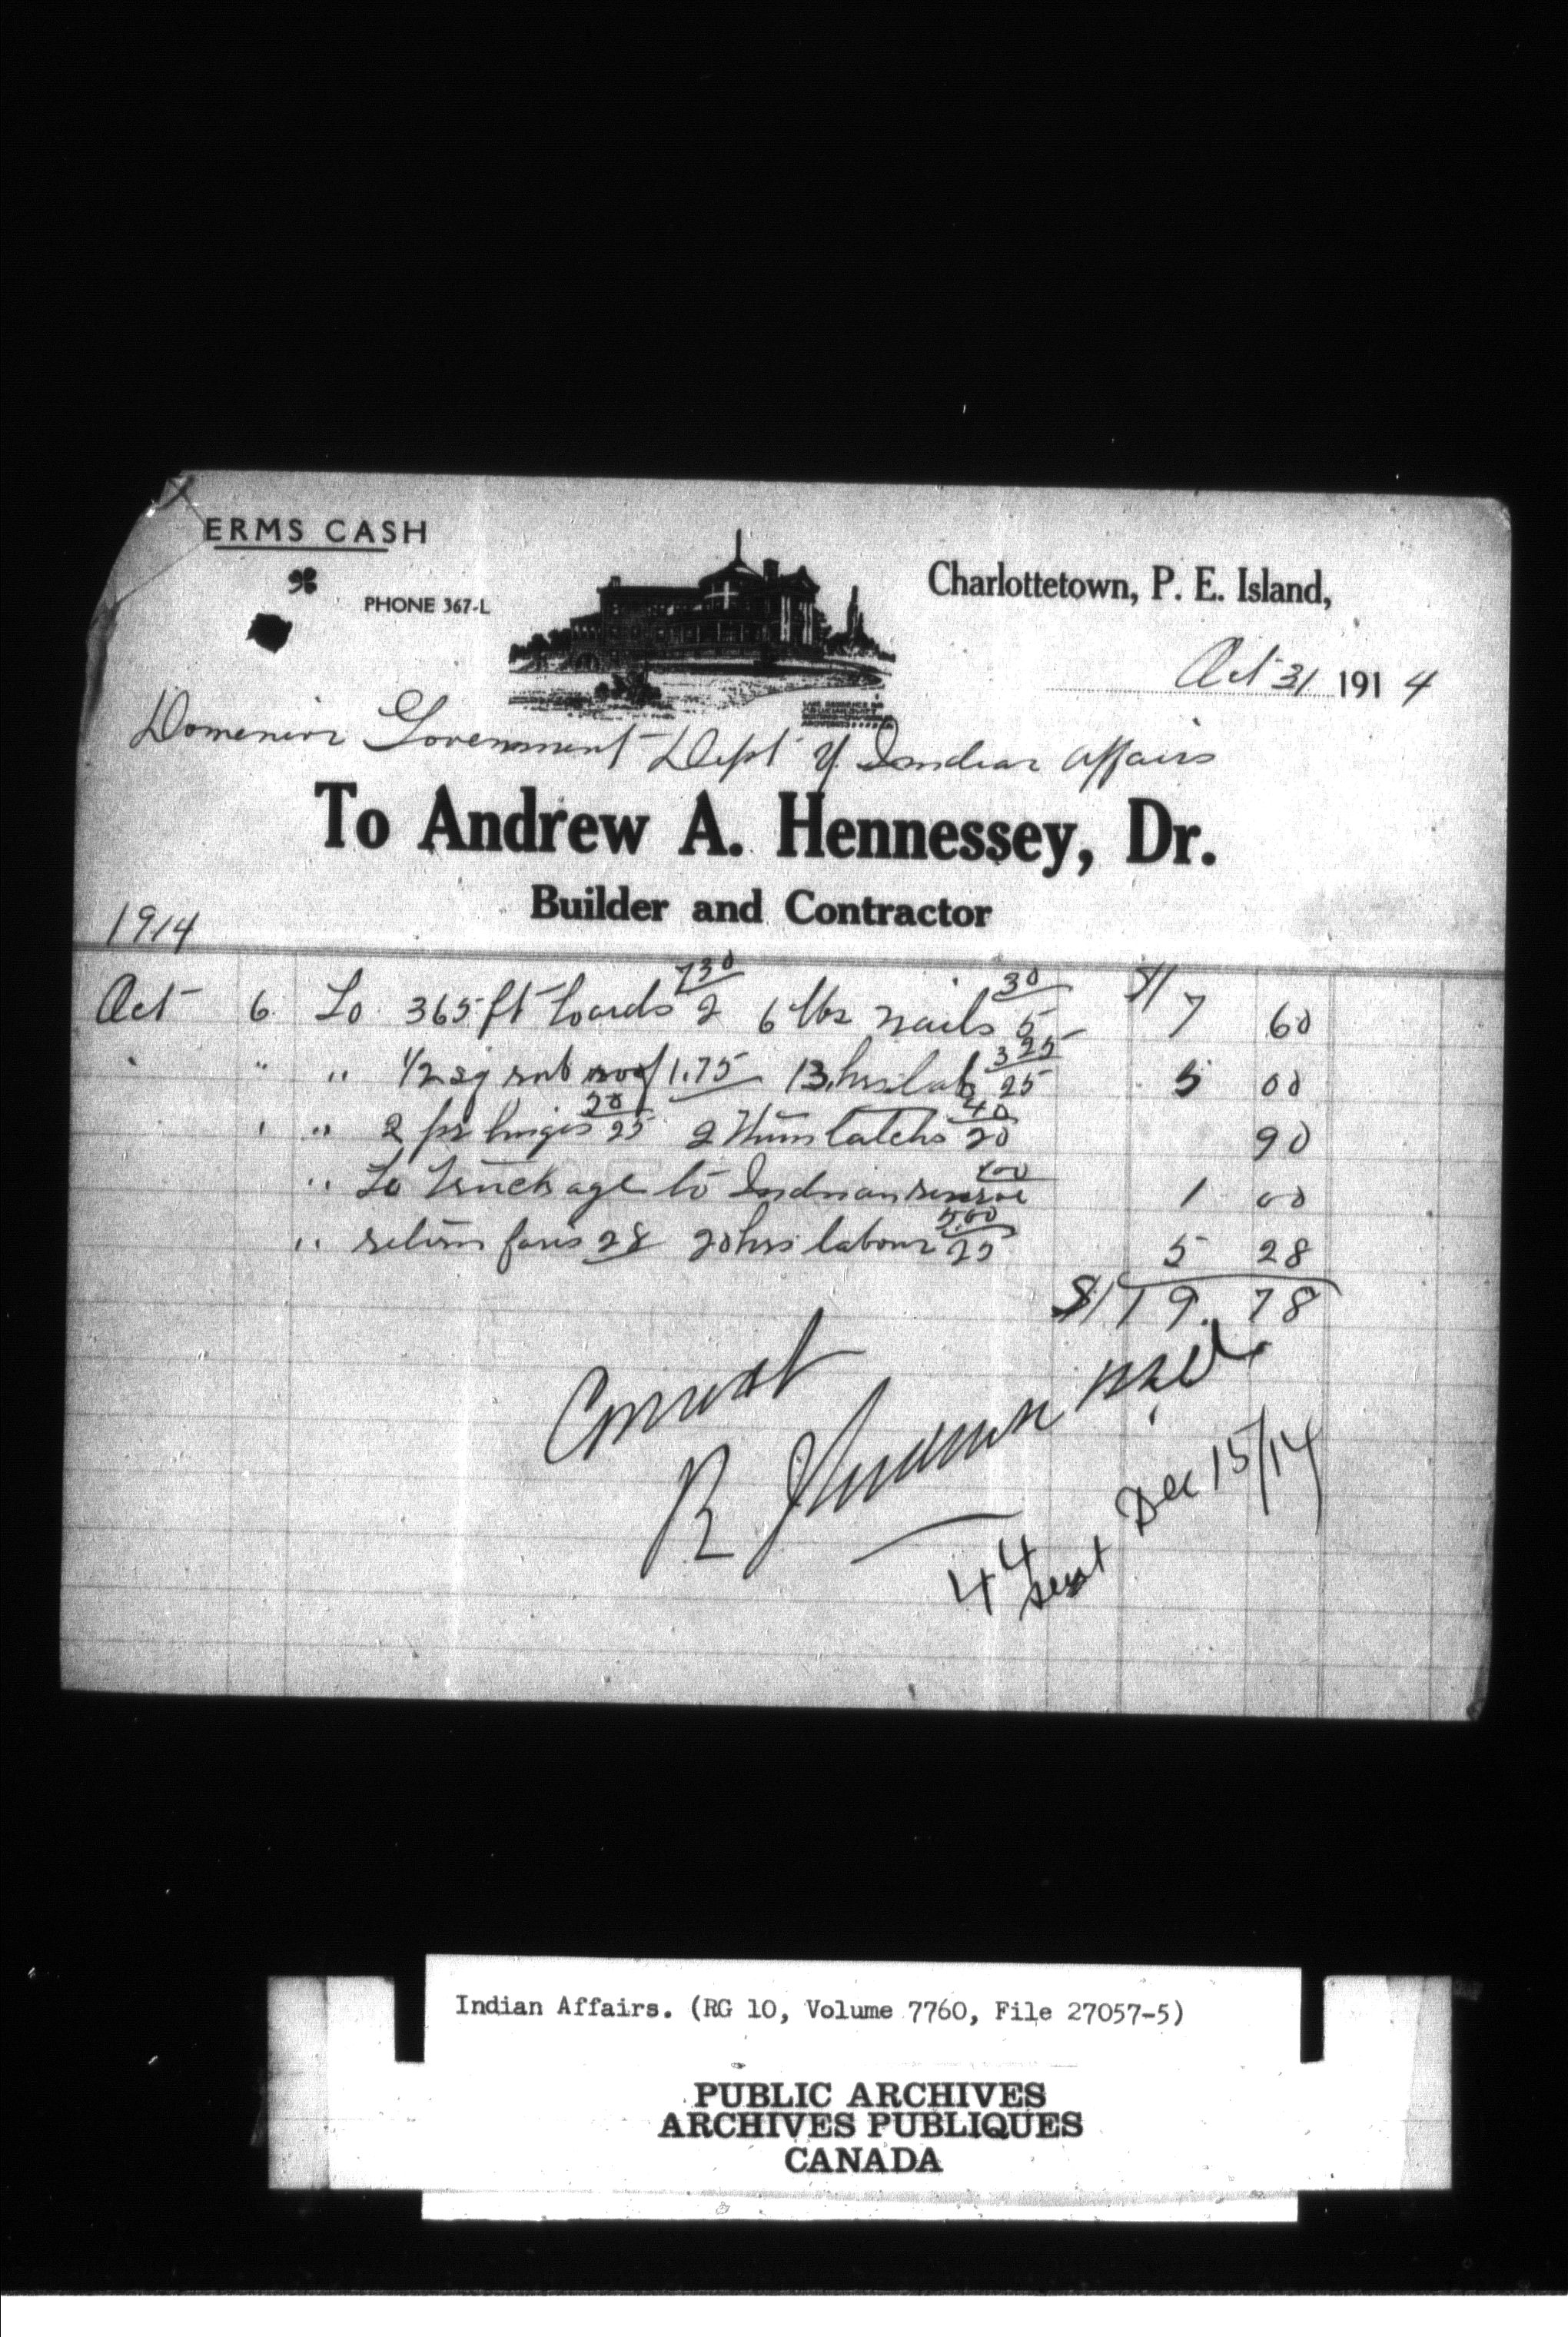 ERMS CASH
PHONE 367-L
Charlottetown, P. E. Island,
Oct 31 1914
Domenion Government Dept of Indian affairs
To Andrew A. Hennessey, Dr.
Builder and Contractor
1914
Oct 6 To 365 ft boards 2 7 30 6 lbs nails 5 30 $ 7 60
" " 1/2 sq rub roof 1.75 13 hrs lab 25 3 25 5 00
" " 2 pr hinges 25 50 2 Thum latchs 20 40 90
" To Truckage to Indian reserve 1 00 1 00
" return fares 28 20 hrs labour 25 5.00 5 28
$ 19.78
Correct
R
44
sent Dec 15/14
Indian Affairs. (RG 10, Volume 7760, File 27057-5)
PUBLIC ARCHIVES
ARCHIVES PUBLIQUES
CANADA